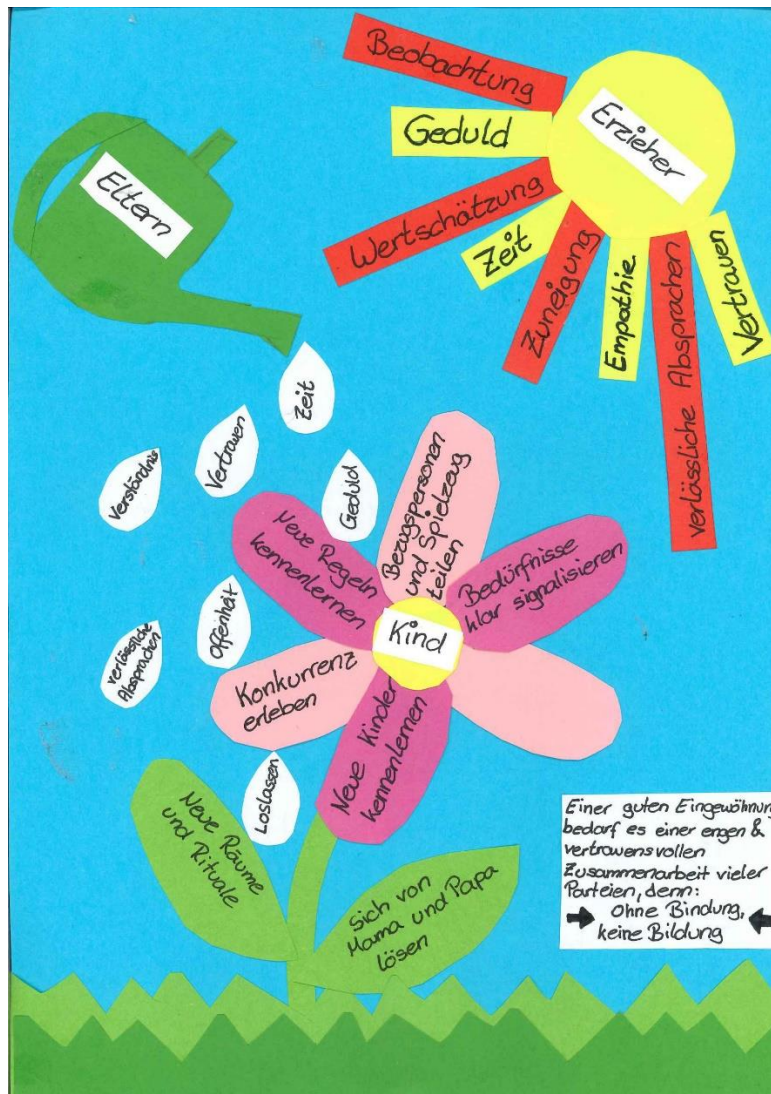 Beobachtung
Geduld
Wertschätzung
Zeit
Zuneigung
Empathie
verlässliche Absprachen
Vertrauen
Erzieher
Eltern
Zeit
Vertrauen
Verständnis
Geduld
Offenheit
verlässliche
Absprachen
Loslassen
Bezugspersonen
und Spielzeug
teilen
Neue Regeln
kennenlernen
Bedürfnisse
klar signalisieren
Kind
Konkurrenz
erleben
Neue Kinder
kennenlernen
Neue Räume
und Rituale
sich von
Mama und Papa
lösen
Einer guten Eingewöhnung
bedarf es einer engen &
vertrauensvollen
Zusammenarbeit vieler
Parteien, denn:
➡ Ohne Bindung, ⬅
keine Bildung